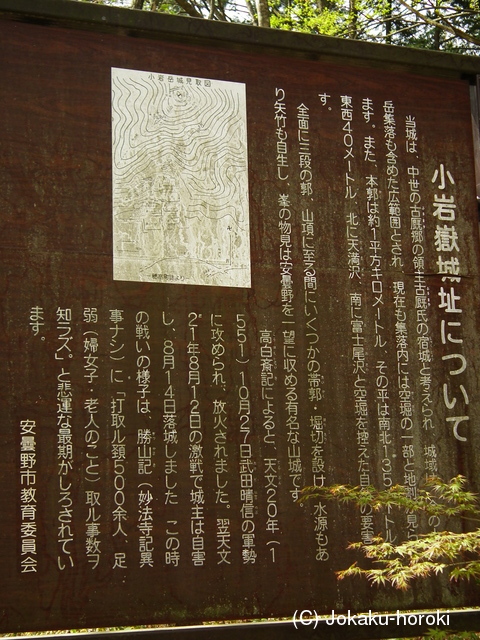 小岩嶽城址について
当城は、中世の古厩郷の領主古厩氏の宿城と考えられ、城域は
岳集落も含めた広範囲とされ、現在も集落内には空堀の一部と地割が見ら
ます。また、本郭は約1平方キロメートル、その平は南北135メートル、
東西40メートル、北に天満沢、南に富士尾沢と空堀を控えた自然の要害
す。
全面に三段の郭、山頂に至る間にいくつかの帯郭・堀切を設け、水源もあ
り矢竹も自生し、峯の物見は安曇野を一望に収める有名な山城です。
小岩岳城見取図
高白斎記によると、天文20年(1
551)10月27日武田晴信の軍勢
に攻められ、放火されました。翌天文
21年8月12日の激戦で城主は自害
し、8月14日落城しました この時
の戦いの様子は、勝山記(妙法寺記異
事ナシ)に「打取ル頚500余人、足
弱(婦女子・老人のこと)取ル事数ヲ
知ラズ」と悲運な最期がしるされてい
ます。
安曇野市教育委員会
(C) Jokaku-horoki